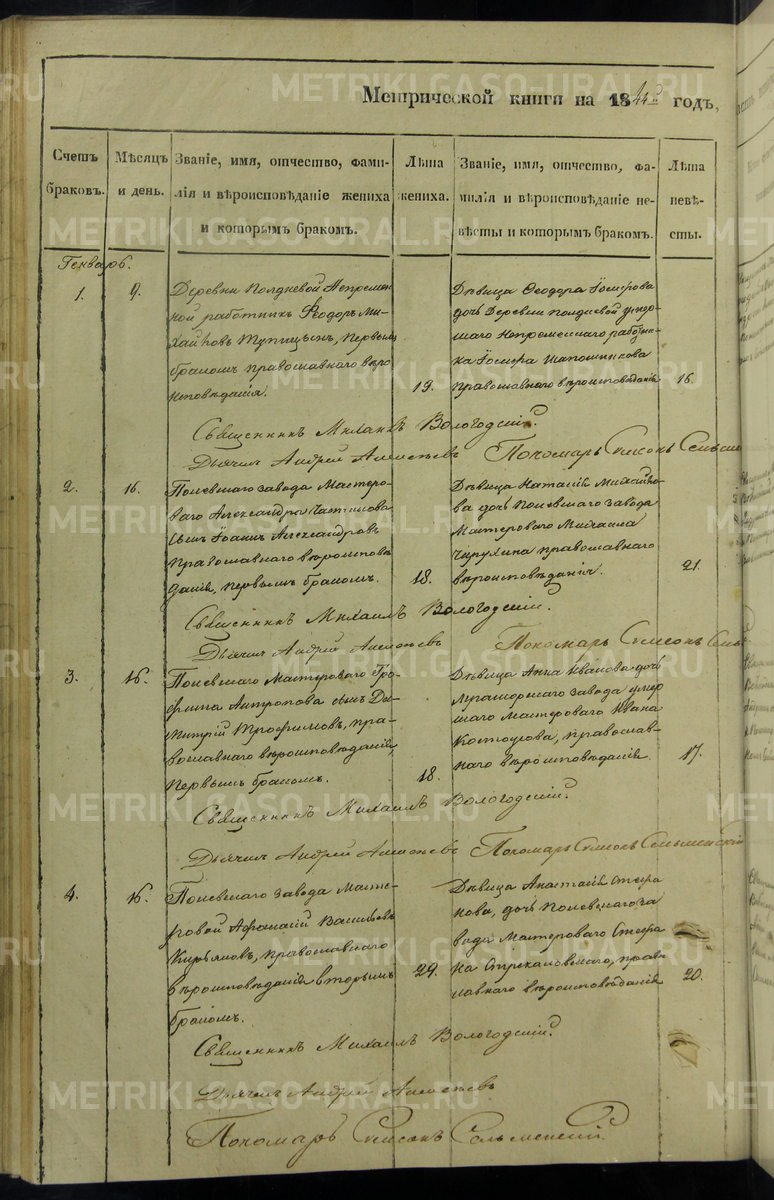 Метрической книги на 1844й годъ,
Счетъ браковъ.
Мѣсяцъ и день.
Званіе, имя, отчество, фами-
лія и вѣроисповѣданіе жениха
и которымъ бракомъ.
Лѣта жениха.
Званіе, имя, отчество, фа-
милія и вѣроисповѣданіе не-
вѣсты и которымъ бракомъ.
Лѣта невѣ-
сты.
Генварь.
1. 9.
Деревни Полдневой Непремен
ной работникъ Ѳеодоръ Ми-
хайловъ Тупицынъ, первымъ
бракомъ православнаго вѣро
исповѣданія.
19.
Дѣвица Ѳеодора Іосифова
дочь Деревни Полдневой умер
шаго Непременнаго работни-
ка Іосифа Шапошникова
православнаго вѣроисповѣданія
16.
Священникъ Михаилъ Вологодскій.
Дьячекъ Андрей Алексѣевъ Пономарь Симеонъ
2. 16.
Полевскаго завода Мастеро-
ваго Александра
сынъ Іоаннъ Александровъ
православнаго вѣроисповѣ
данія, первымъ бракомъ.
18.
Дѣвица Наталія Михайло-
ва дочь Полевскаго завода
Мастероваго Михаила
Чирухина православнаго
вѣроисповѣданія.
21.
Священникъ Михаилъ Вологодскій.
Дьячекъ Андрей Алексѣевъ Пономарь Симеонъ
3. 16.
Полевскаго Мастероваго Тро-
фима Антропова сынъ Ди-
митрій Трофимовъ, пра-
вославнаго вѣроисповѣданія,
первымъ бракомъ.
18.
Дѣвица Анна Иванова дочь
Мраморскаго завода умер
шаго Мастероваго Ивана
Костоусова, православ-
наго вѣроисповѣданія.
17.
Священникъ Михаилъ Вологодскій.
Дьячекъ Андрей Алексѣевъ Пономарь Симеонъ Сельменскій
4. 16.
Полевскаго завода Масте-
ровой Афанасій Васильевъ
Кирьяновъ, православнаго
вѣроисповѣданія вторымъ
бракомъ.
29.
Дѣвица Анастасія Стефа
нова, дочь Полевскаго за
вода Мастероваго Стефа
на Стрекаловскаго, право
славнаго вѣроисповѣданія
20.
Священникъ Михаилъ Вологодскій.
Дьячекъ Андрей Алексѣевъ
Пономарь Симеонъ Сельменскій
METRIKI.GASO-URAL.RU